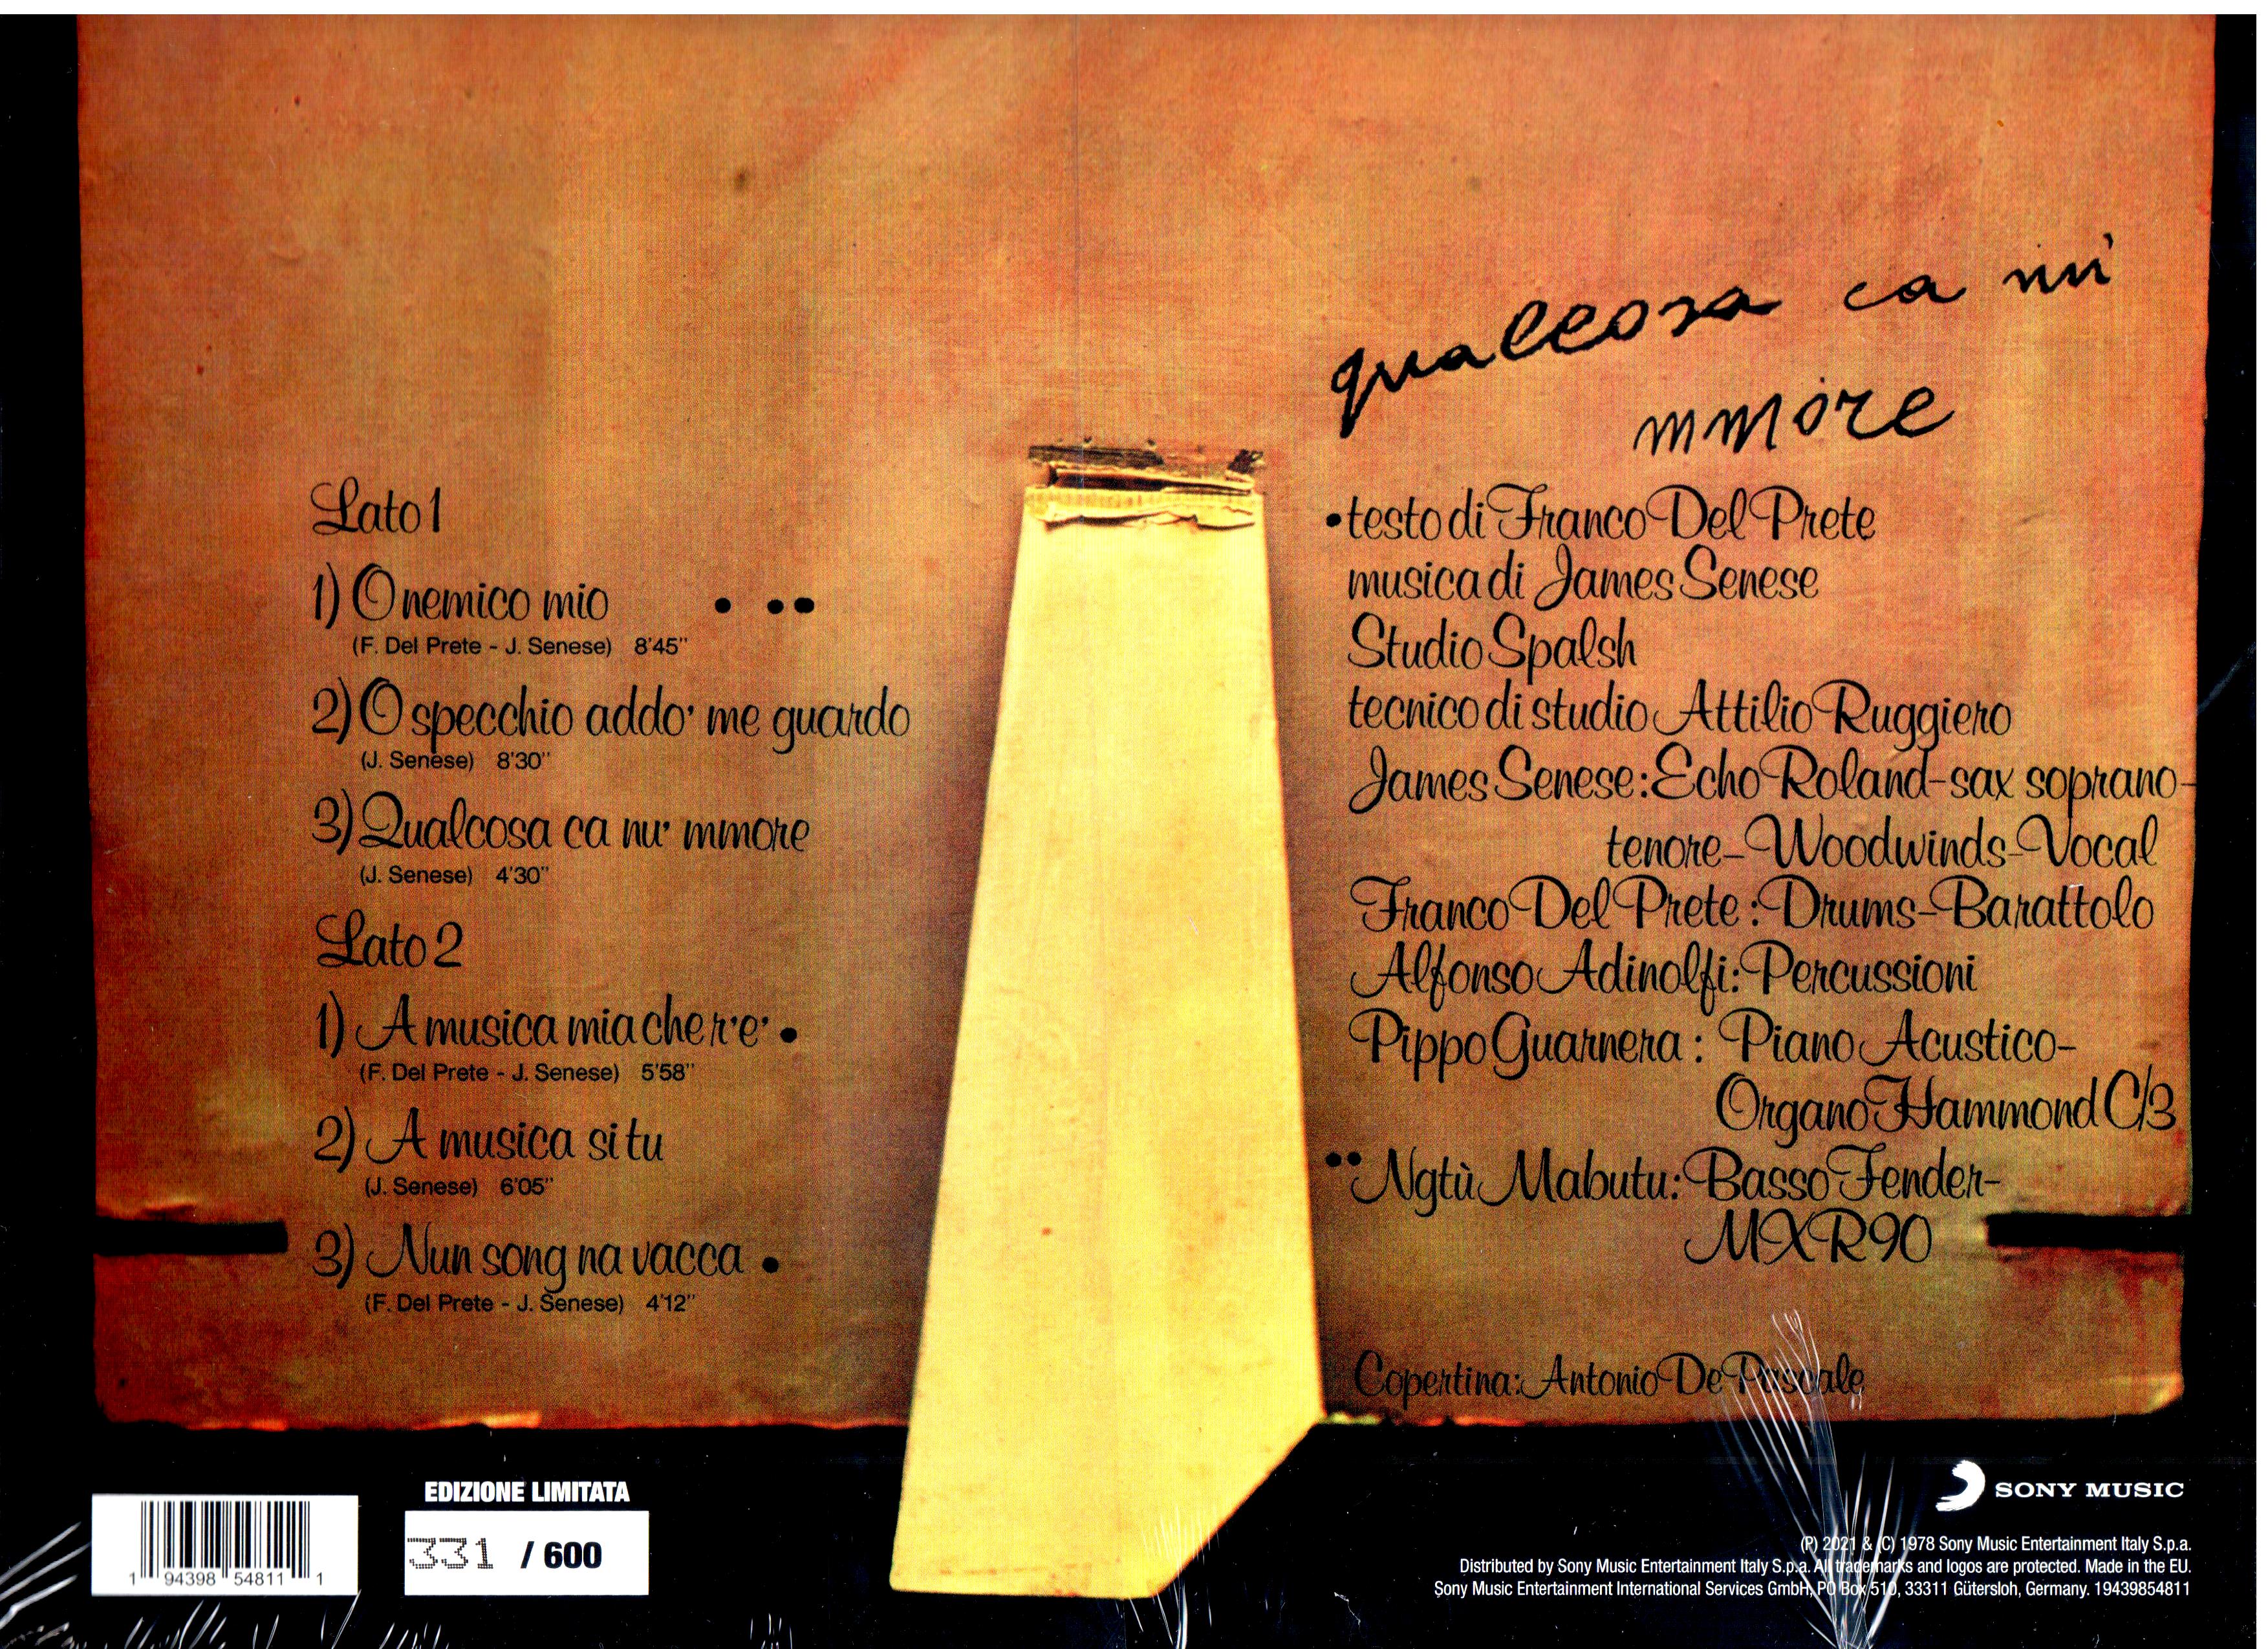 qualcosa ca nu'
mmore
Lato 1
1) O nemico mio • • •
(F. Del Prete - J. Senese) 8'45"
2) O specchio addo' me guardo
(J. Senese) 8'30"
3) Qualcosa ca nu' mmore
(J. Senese) 4'30"
Lato 2
1) A musica mia che r'e' •
(F. Del Prete - J. Senese) 5'58"
2) A musica si tu
(J. Senese) 6'05"
3) Nun song na vacca •
(F. Del Prete - J. Senese) 4'12"
• testo di Franco Del Prete
musica di James Senese
Studio Spalsh
tecnico di studio Attilio Ruggiero
James Senese: Echo Roland-sax soprano-
tenore-Woodwinds-Vocal
Franco Del Prete: Drums-Barattolo
Alfonso Adinolfi: Percussioni
Pippo Guarnera: Piano Acustico-
Organo Hammond C/3
•• Ngtù Mabutu: Basso Fender-
MXR90
Copertina: Antonio De Pascale
1 94398 54811 1
EDIZIONE LIMITATA
331 / 600
SONY MUSIC
(P) 2021 & (C) 1978 Sony Music Entertainment Italy S.p.a.
Distributed by Sony Music Entertainment Italy S.p.a. All trademarks and logos are protected. Made in the EU.
Sony Music Entertainment International Services GmbH, PO Box 510, 33311 Gütersloh, Germany. 19439854811